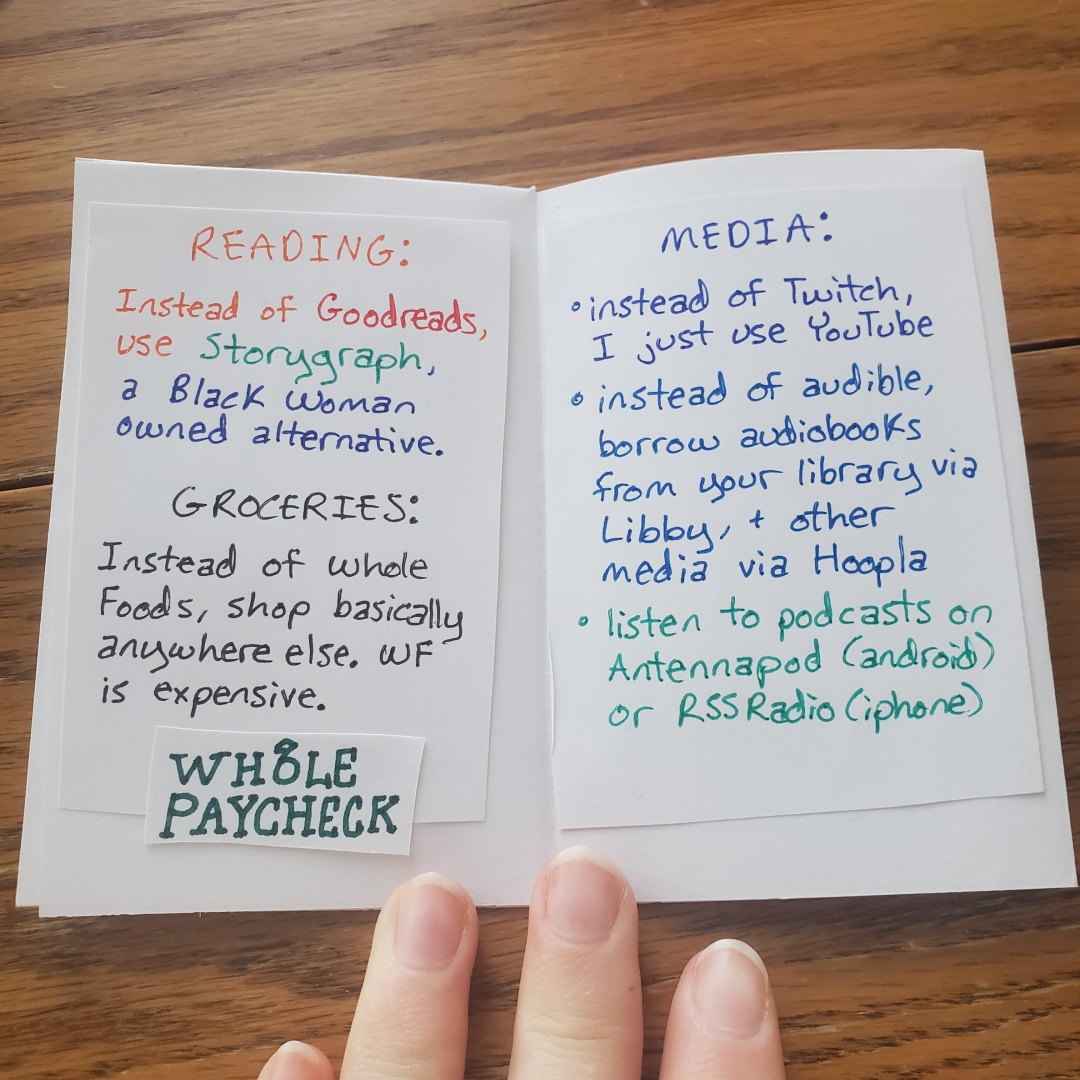 READING:
Instead of Goodreads,
use Storygraph,
a Black woman
owned alternative.
GROCERIES:
Instead of whole
Foods, shop basically
anywhere else. WF
is expensive.
WHOLE
PAYCHECK
MEDIA:
• instead of Twitch,
I just use YouTube
• instead of audible,
borrow audiobooks
from your library via
Libby, + other
media via Hoopla
• listen to podcasts on
Antennapod (android)
or RSSRadio (iphone)